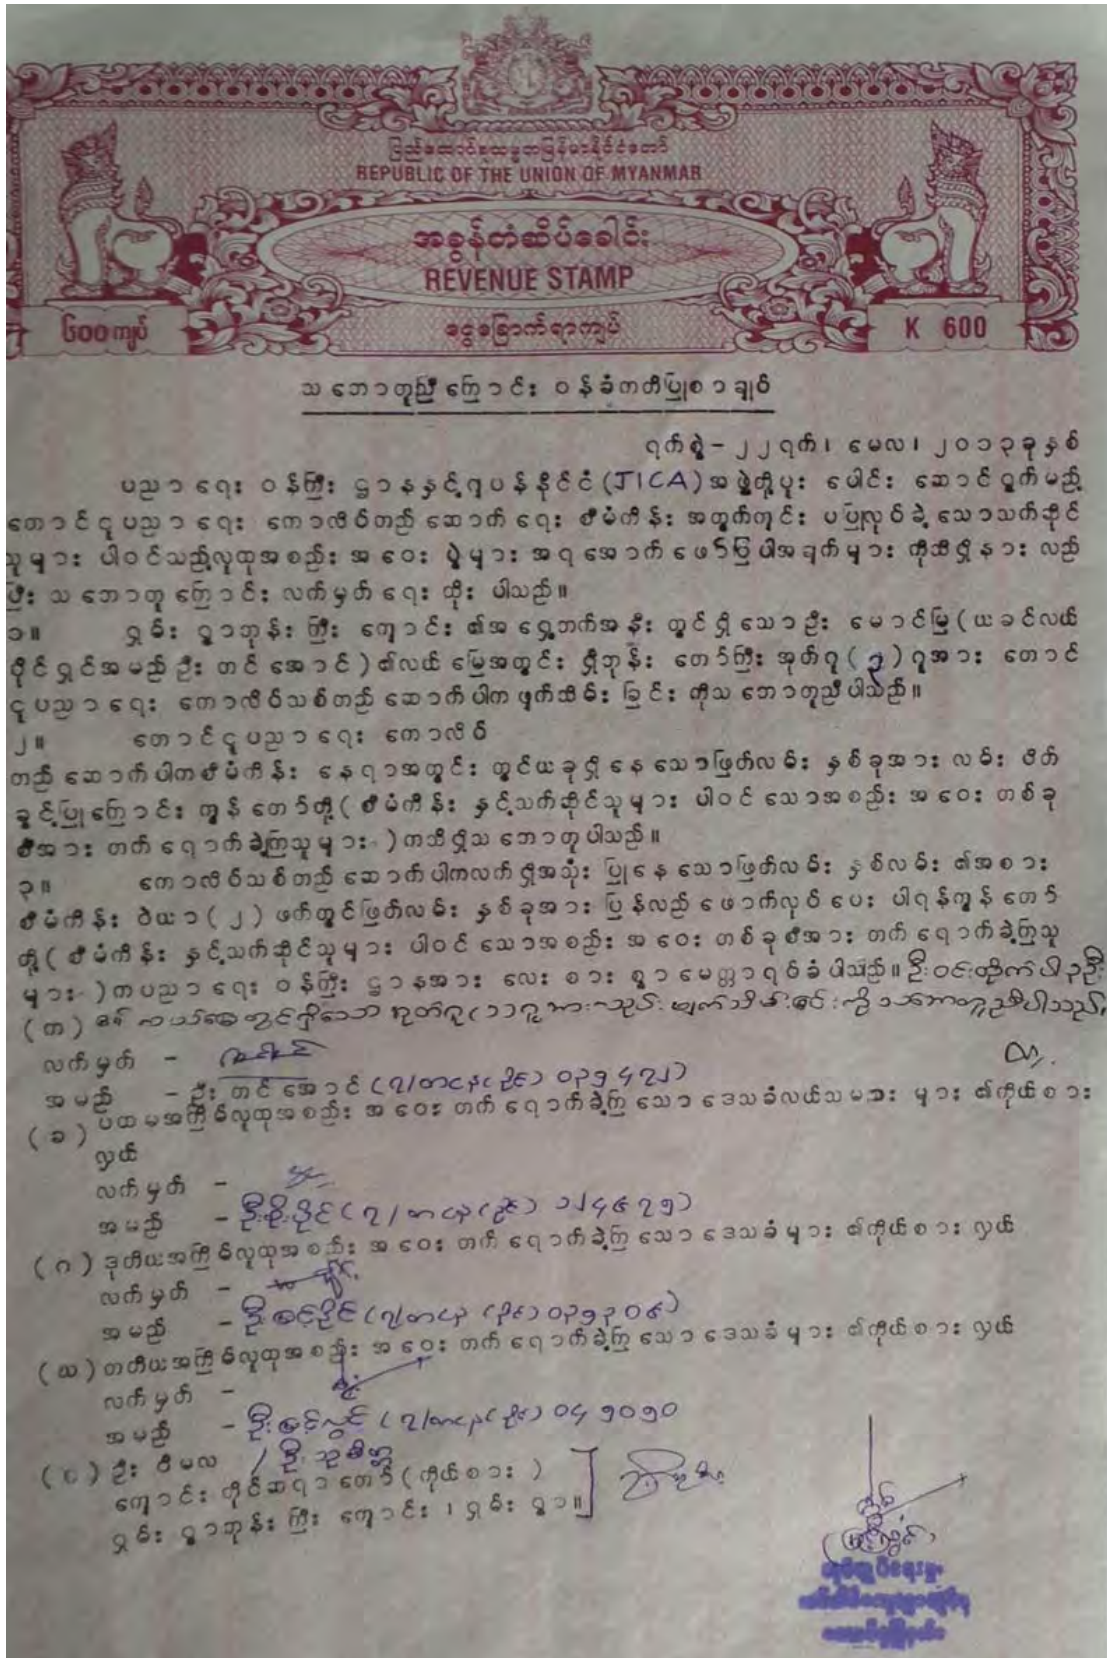 ပြည်ထောင်စုသမ္မတမြန်မာနိုင်ငံတော်
REPUBLIC OF THE UNION OF MYANMAR
အခွန်တံဆိပ်ခေါင်း
REVENUE STAMP
၆၀၀ကျပ် ငွေခြောက်ရာကျပ် K 600
သဘောတူညီကြောင်း ဝန်ခံကတိပြုစာချုပ်
ရက်စွဲ-၂၂ရက်၊ မေလ၊ ၂၀၁၃ခုနှစ်
ပညာရေး ဝန်ကြီး ဌာနနှင့်ဂျပန်နိုင်ငံ(JICA)အဖွဲ့တို့ပူး ပေါင်း ဆောင်ရွက်မည့်
တောင်ငူပညာရေး ကောလိပ်တည်ဆောက်ရေး စီမံကိန်း အတွက်ကျင်း ပပြုလုပ်ခဲ့သောသက်ဆိုင်
သူများ ပါဝင်သည့်လူထုအစည်း အဝေး ပွဲများ အရအောက်ဖော်ပြပါအချက်များ ကိုသိရှိနား လည်
ပြီး သဘောတူကြောင်း လက်မှတ်ရေး ထိုး ပါသည်။
၁။ ရှမ်း ရွာဘုန်း ကြီး ကျောင်း ၏အရှေ့ဘက်အနီး တွင်ရှိသောဦး မောင်မြ(ယခင်လယ်
ပိုင်ရှင်အမည်ဦး တင်အောင်)၏လယ်မြေအတွင်း ရှိဘုန်း တော်ကြီး အုတ်ဂူ(၃)ဂူအား တောင်
ငူပညာရေး ကောလိပ်သစ်တည်ဆောက်ပါကဖျက်သိမ်း ခြင်း ကိုသဘောတူညီပါသည်။
၂။ တောင်ငူပညာရေး ကောလိပ်
တည်ဆောက်ပါကစီမံကိန်း နေရာအတွင်း တွင်ယခုရှိနေသောဖြတ်လမ်း နှစ်ခုအား လမ်း ပိတ်
ခွင့်ပြုကြောင်း ကျွန်တော်တို့(စီမံကိန်း နှင့်သက်ဆိုင်သူများ ပါဝင်သောအစည်း အဝေး တစ်ခု
စီအား တက်ရောက်ခဲ့ကြသူများ )ကသိရှိသဘောတူပါသည်။
၃။ ကောလိပ်သစ်တည်ဆောက်ပါကလက်ရှိအသုံး ပြုနေသောဖြတ်လမ်း နှစ်လမ်း ၏အစား
စီမံကိန်း ဝဲယာ(၂)ဖက်တွင်ဖြတ်လမ်း နှစ်ခုအား ပြန်လည်ဖောက်လုပ်ပေး ပါရန်ကျွန်တော်
တို့(စီမံကိန်း နှင့်သက်ဆိုင်သူများ ပါဝင်သောအစည်း အဝေး တစ်ခုစီအား တက်ရောက်ခဲ့ကြသူ
များ )ကပညာရေး ဝန်ကြီး ဌာနအား လေး စား စွာမေတ္တာရပ်ခံပါသည်။
(က)
လက်မှတ် -
အမည် - ဦး တင်အောင်
(ခ) ပထမအကြိမ်လူထုအစည်း အဝေး တက်ရောက်ခဲ့ကြသောဒေသခံလယ်သမား များ ၏ကိုယ်စား
လှယ်
လက်မှတ် -
အမည် -
(ဂ) ဒုတိယအကြိမ်လူထုအစည်း အဝေး တက်ရောက်ခဲ့ကြသောဒေသခံများ ၏ကိုယ်စား လှယ်
လက်မှတ် -
အမည် -
(ဃ)တတိယအကြိမ်လူထုအစည်း အဝေး တက်ရောက်ခဲ့ကြသောဒေသခံများ ၏ကိုယ်စား လှယ်
လက်မှတ် -
အမည် -
(င)ဦး ဝိမလ /
ကျောင်း ထိုင်ဆရာတော်(ကိုယ်စား )
ရှမ်း ရွာဘုန်း ကြီး ကျောင်း ၊ ရှမ်း ရွာ။